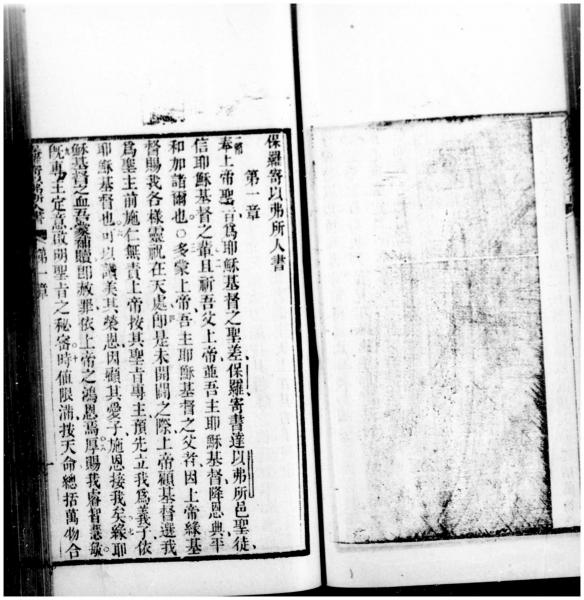 保羅寄以弗所人書
第一章
奉上帝聖旨爲耶穌基督之聖差保羅寄書達以弗所邑聖徒
信耶穌基督之輩且祈吾父上帝並吾主耶穌基督降恩典平
和加諸爾也○多蒙上帝吾主耶穌基督之父者因上帝緣基
督賜我各樣靈祝在天處卽是未開闢之際上帝顧基督選我
爲聖主前施仁無責上帝按其聖旨專主預先立我爲義子依
耶穌基督也可以讚美其榮恩因顧其愛子施恩接我矣緣耶
穌基督之血吾蒙贖卽赦罪依上帝之鴻恩焉厚賜我睿智慧敏
主定意啟明聖旨之秘密時値限滿按天命總括萬物合
以弗所人書
第一章